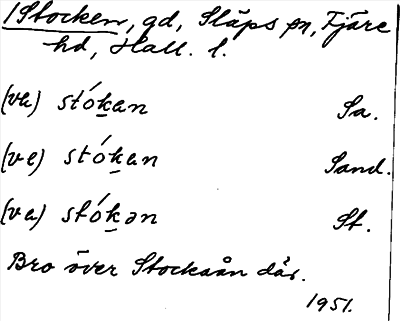 /Stocken, gd, Släps sn, Fjäre
hd, Hall. l.
(va) stókan Sa.
(ve) stókan Sand.
(va) stókən St.
Bro över Stockaån där.
1951.